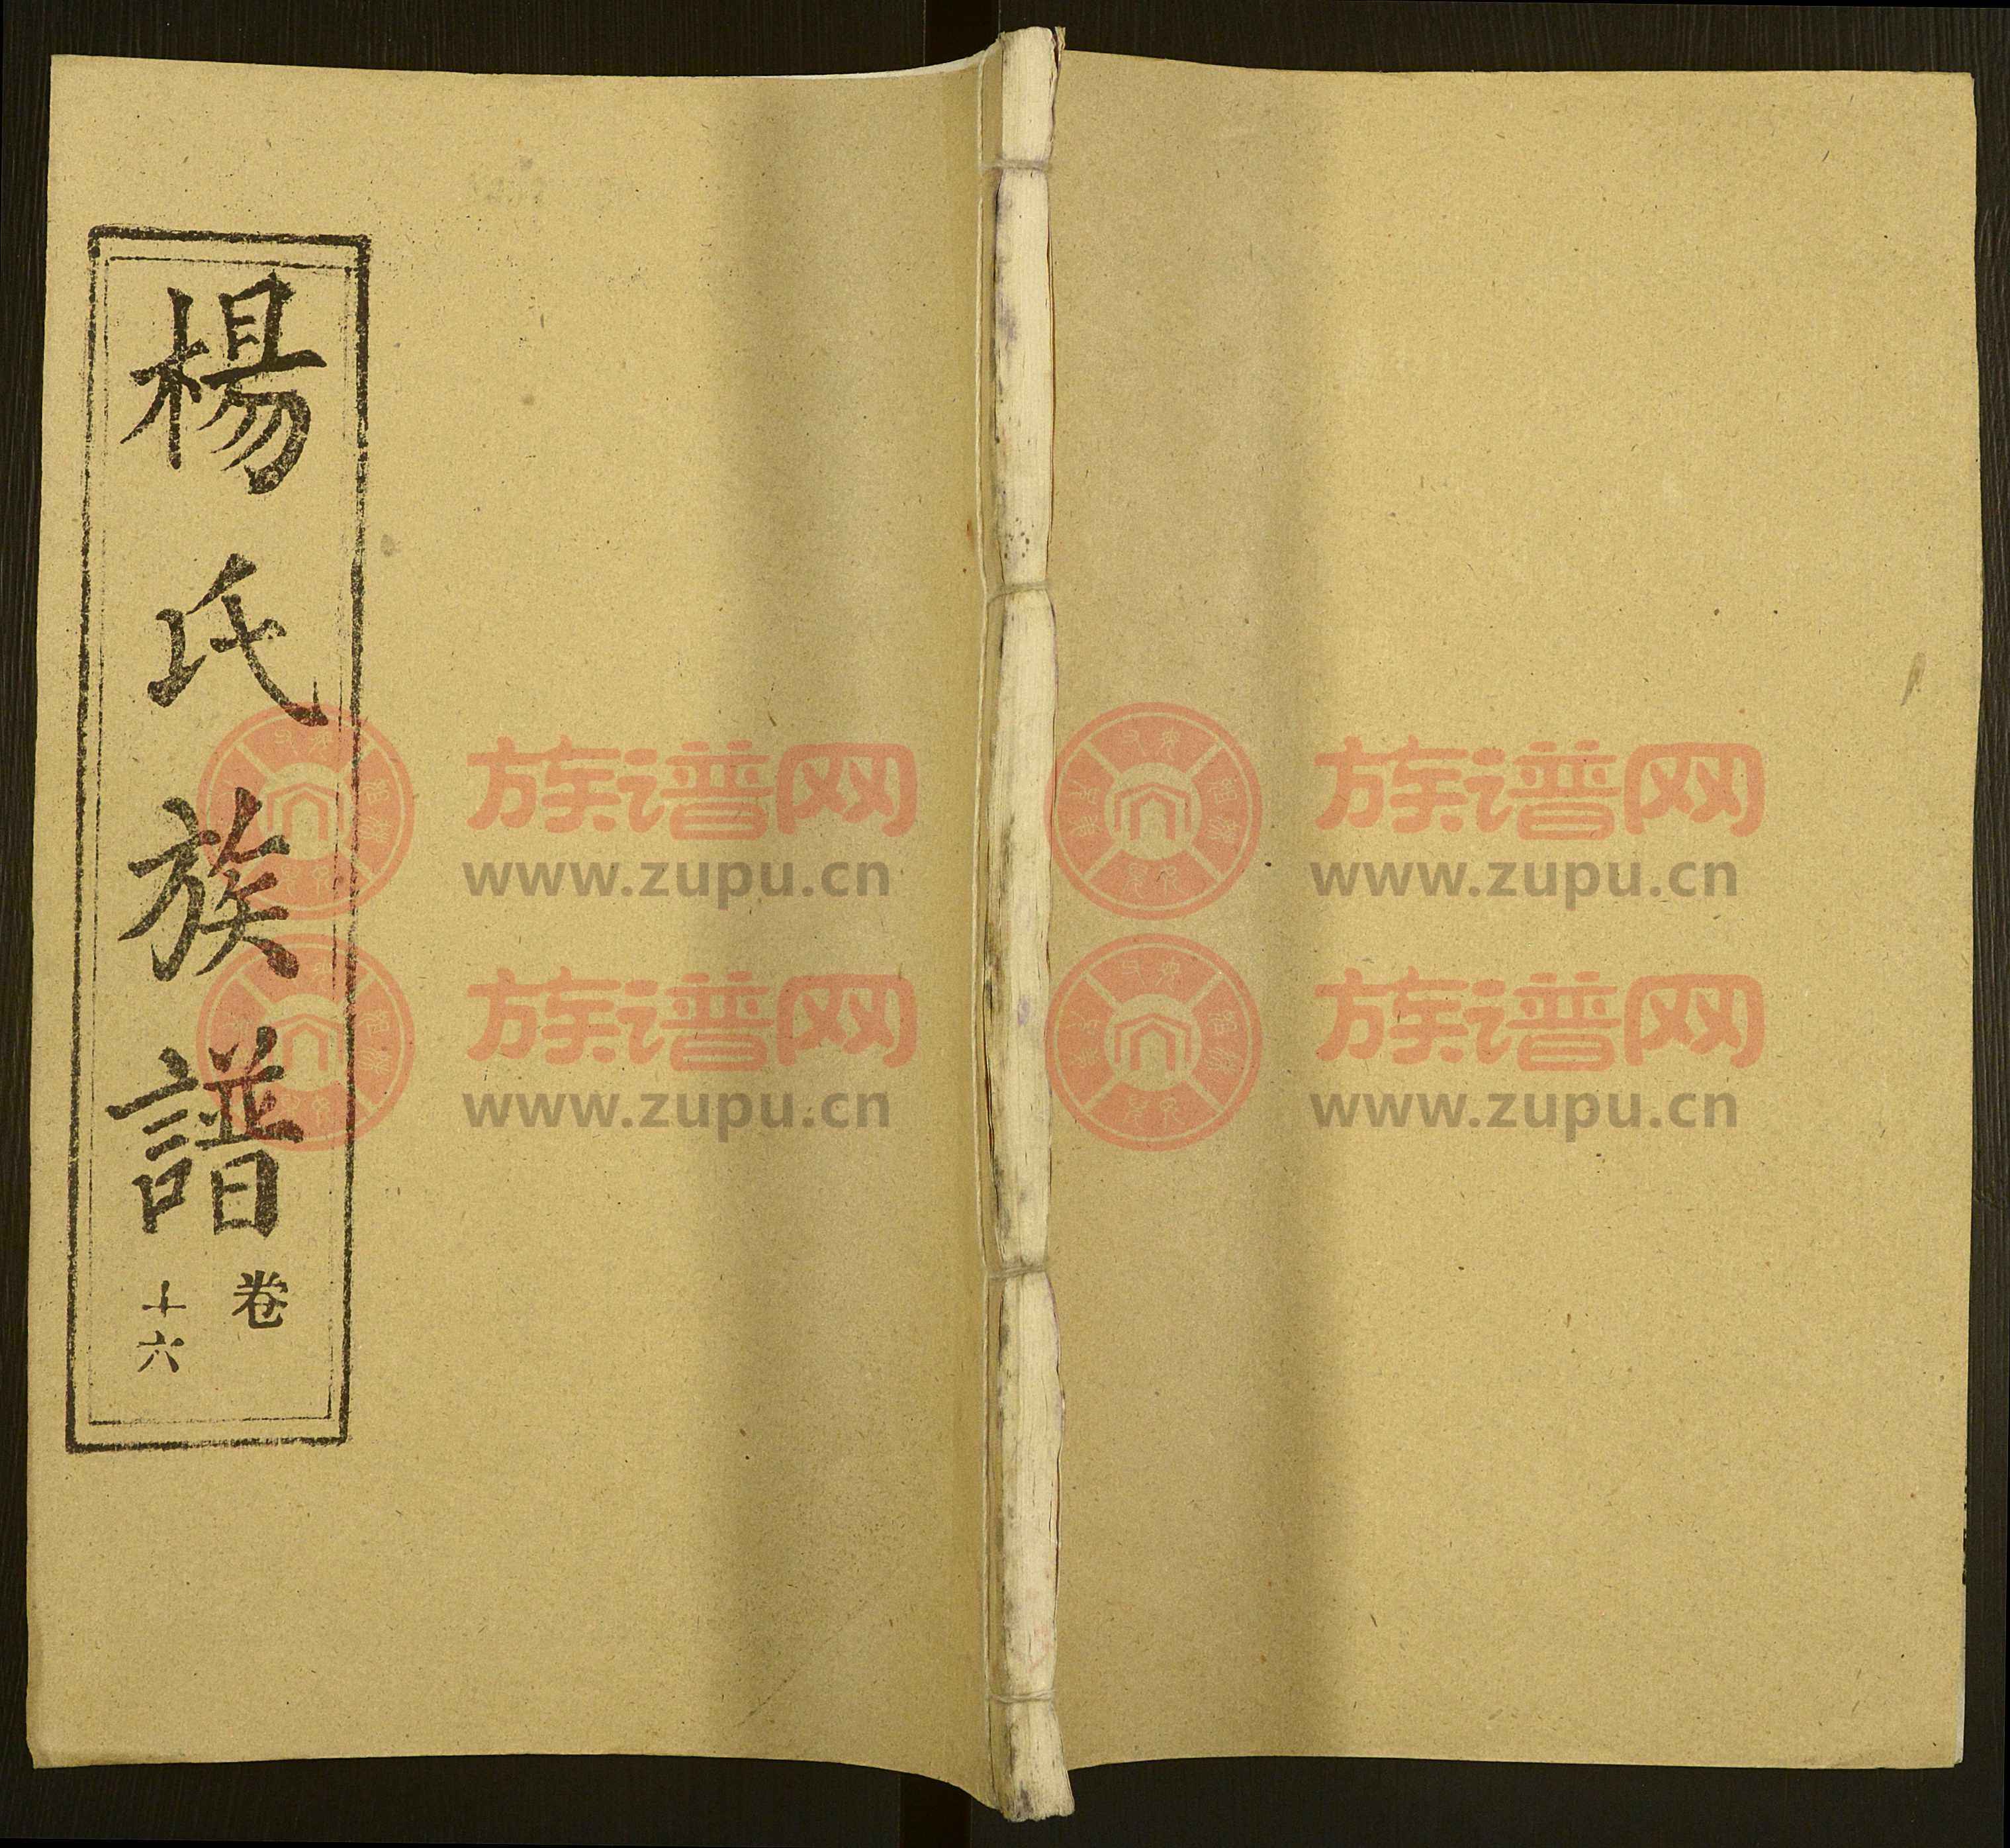 楊氏族譜
卷
十六
族谱网
www.zupu.cn
族谱网
www.zupu.cn
族谱网
www.zupu.cn
族谱网
www.zupu.cn